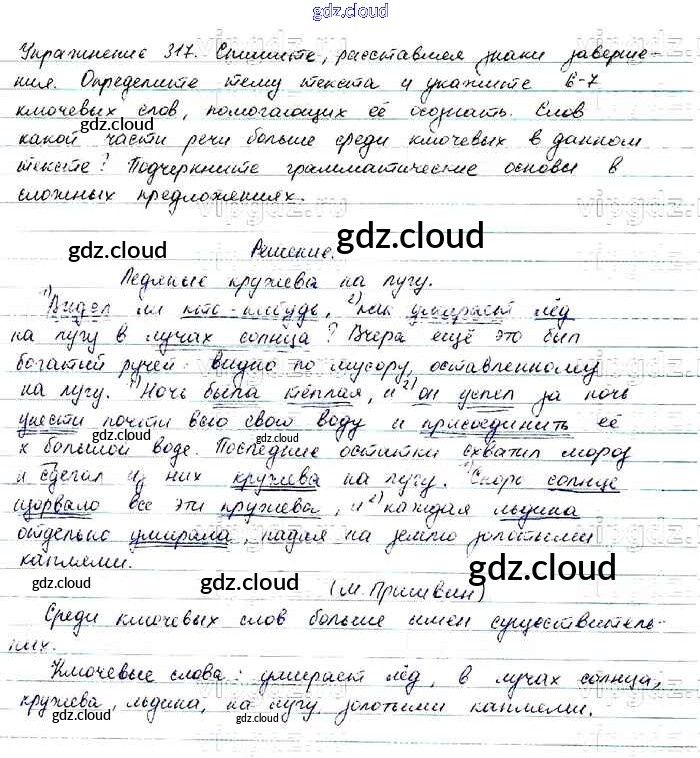 gdz.cloud
Упражнение 317. Спишите, расставляя знаки заверше-
ния. Определите тему текста и укажите 6-7
ключевых слов, помогающих её осознать. Слов
gdz.cloud
какой части речи больше среди ключевых в данном
тексте? Подчеркните грамматические основы в
сложных предложениях.
vipgdz.ru
gdz.cloud
gdz.cloud
Решение.
Ледяные кружева на лугу.
1)Видел ли кто-нибудь, 2)как умирает лёд
на лугу в лучах солнца? Вчера ещё это был
богатый ручей: видно по мусору, оставленному
на лугу. 1)Ночь была тёплая, и 2)он успел за ночь
унести почти всю свою воду и присоединить её
gdz.cloud
к большой воде. Последние остатки схватил мороз
gdz.cloud
и сделал из них кружева на лугу. 1)Скоро солнце
изорвало все эти кружева, и 2)каждая льдина
отдельно умирала, падая на землю золотыми
каплями.
gdz.cloud
gdz.cloud
gdz.cloud
(М. Пришвин)
Среди ключевых слов больше имен существитель-
ных.
Ключевые слова: умирает лёд, в лучах солнца,
кружева, льдина, на лугу, золотыми каплями.
gdz.cloud
gdz.cloud